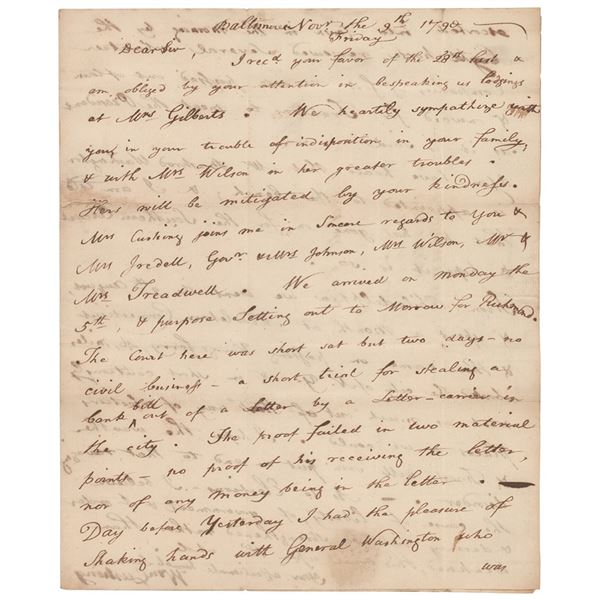 Baltimore Novr the 9th 1798
Friday
Dear Sir, I recd your favor of the 28th inst &
am obliged by your attention in bespeaking us lodgings
at Mrs Gilberts. We heartily sympathize with
you, in your trouble of indisposition in your family,
& with Mrs Wilson in her greater troubles.
Hers will be mitigated by your kindness.
Mrs Cushing joins me in Sincere regards to You &
Mrs Iredell, Govr. & Mrs Johnson, Mrs Wilson, Mr &
Mrs Treadwell. We arrived on monday the
5th, & purpose Setting out to Morrow for Richmond.
The Court here was short sat but two days – no
civil business – a short trial for stealing a
bank bill out of a Letter by a Letter-carrier in
the city. The proof failed in two material
points – no proof of his receiving the letter,
nor of any money being in the letter.
Day before Yesterday I had the pleasure of
Shaking hands with General Washington who
was